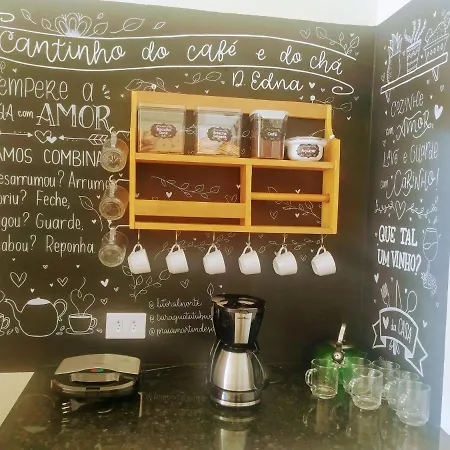 Cantinho do café e do chá
D. Edna
EMPERE A
COM AMOR
AMOS COMBINA
esarrumou? Arrume
briu? Feche,
gou? Guarde,
abou? Reponha
CAFÉ
@literalnorte
COZINHE
com Amor
LAVE e GUARDE
com CARINHO!
QUE TAL
UM VINHO?
da CASA